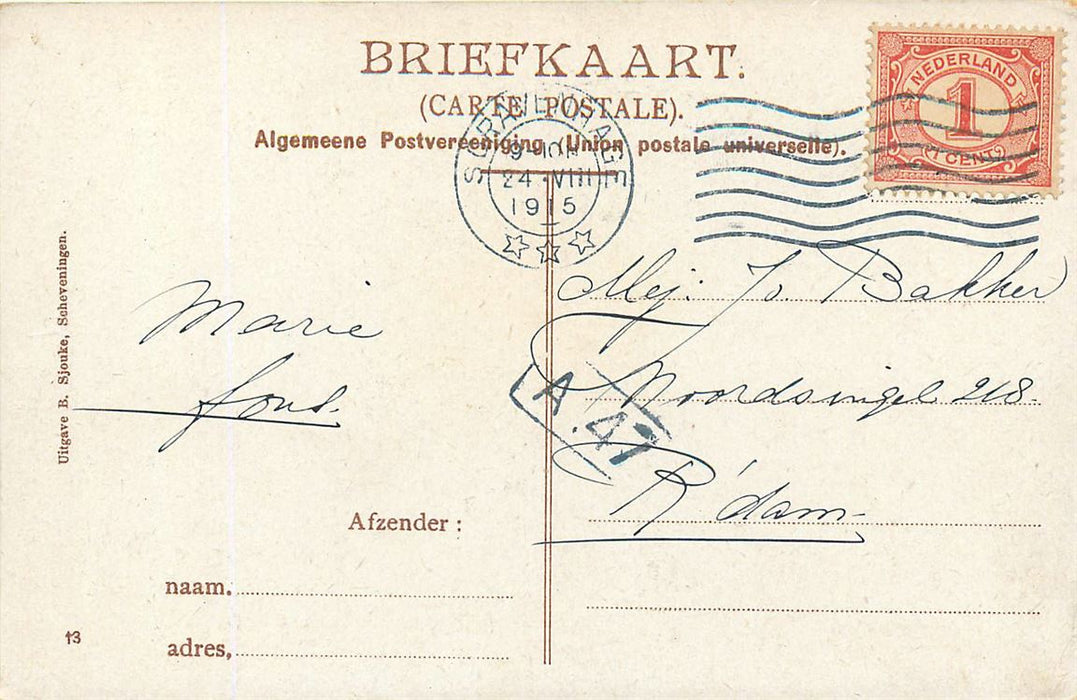 BRIEFKAART.
(CARTE POSTALE).
Algemeene Postvereeniging (Union postale universelle).
NEDERLAND
1
1 CENT
'S GRAVENHAGE
24 VIII
1915
Uitgave B. Sjouke, Scheveningen.
Marie
Mej: Jo. Bakker
Noordsingel 218.
A.47
R'dam
Afzender:
naam.
adres,
13